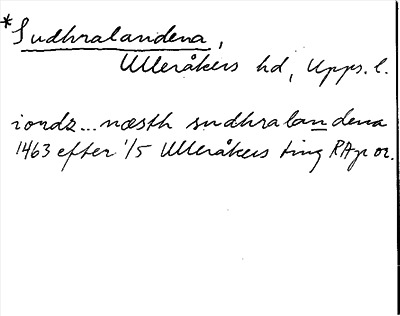 *Sudhralandena,
Ulleråkers hd, Upps. l.
iordz... næsth sudhralandena
1463 efter 1/5 Ulleråkers ting RAp or.